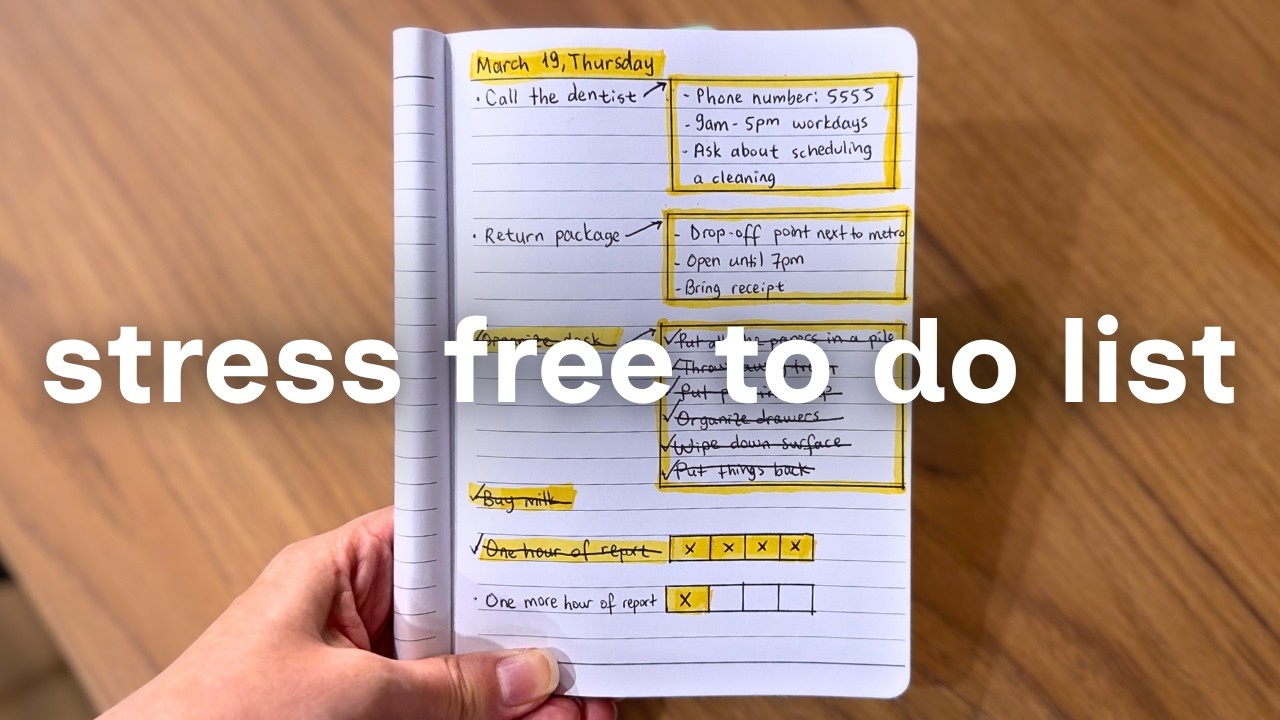 March 19, Thursday
· Call the dentist
- Phone number: 5555
- 9am - 5pm workdays
- Ask about scheduling
a cleaning
· Return package
- Drop-off point next to metro
- Open until 7pm
- Bring receipt
stress free to do list
Organize desk
Put all the papers in a pile
Put
Organize drawers
Wipe down surface
Put things back
Buy milk
One hour of report
x x x x
· One more hour of report
x